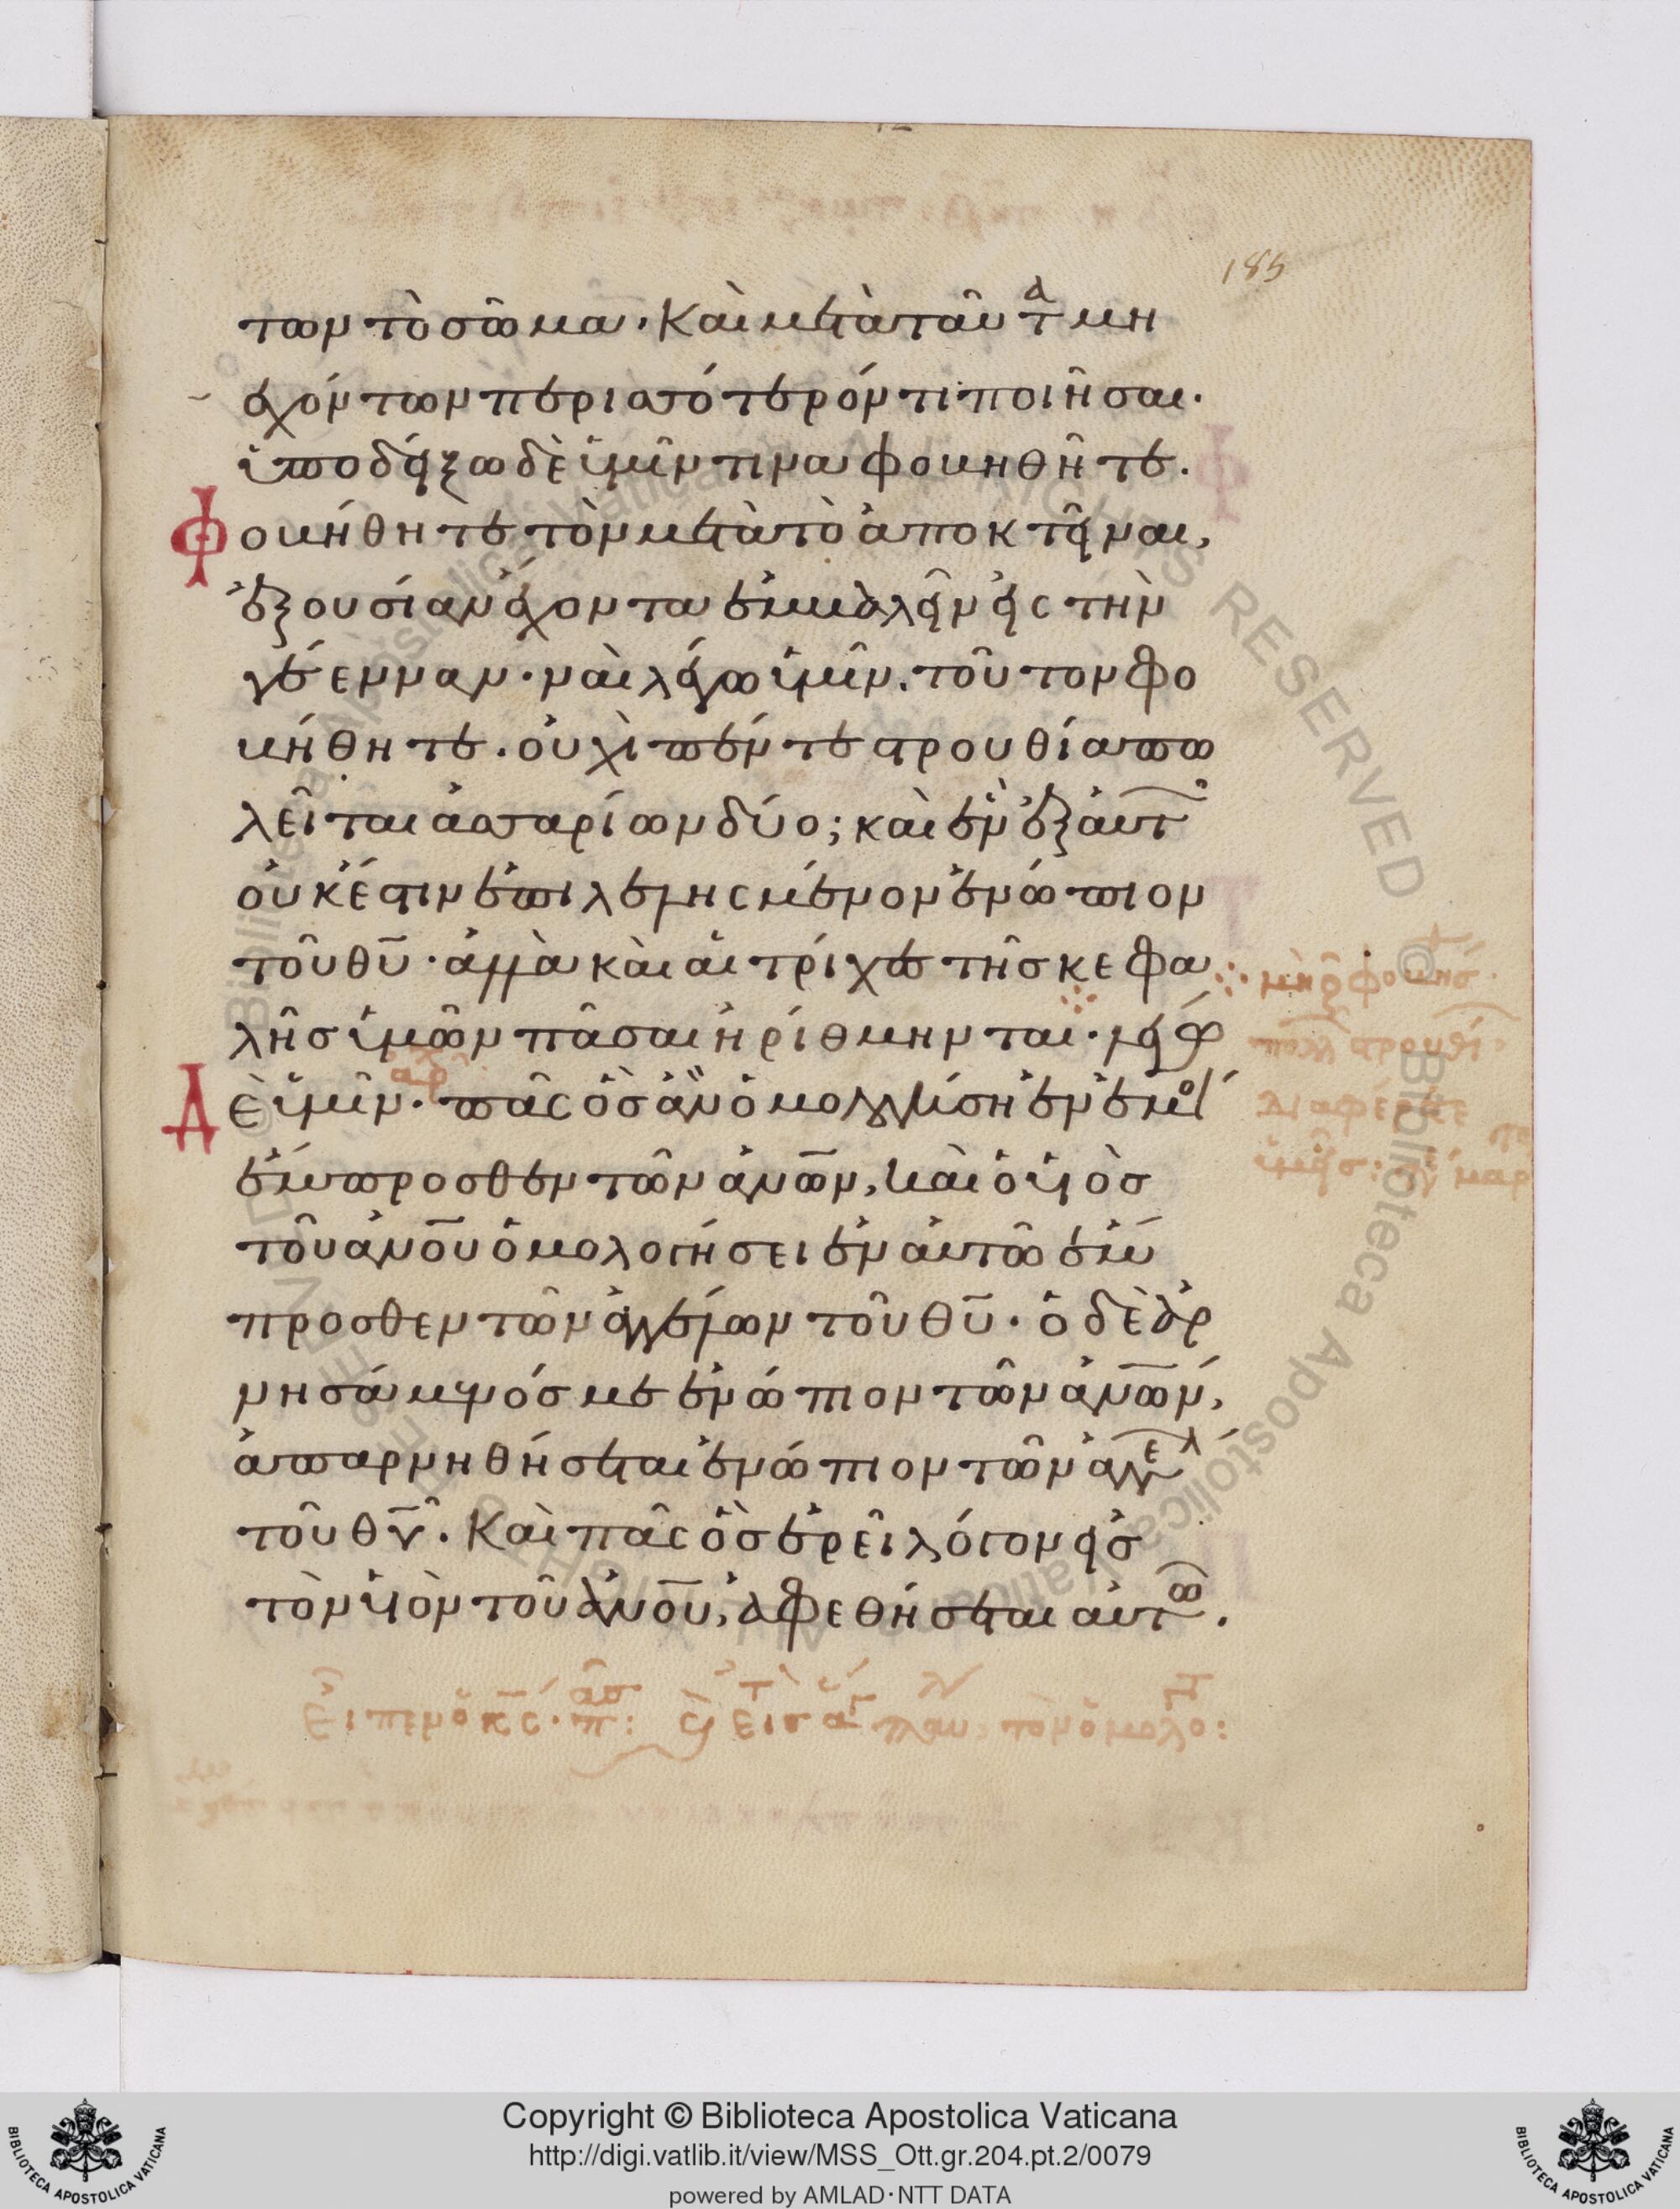 185
των τὸ σῶμα. Καὶ μετὰ ταῦτα μὴ
ἐχόντων περισσότερόν τι ποιῆσαι.
ὑποδείξω δὲ ὑμῖν τίνα φοβηθῆτε.
Φοβήθητε τὸν μετὰ τὸ ἀποκτεῖναι,
ἐξουσίαν ἔχοντα ἐμβαλεῖν εἰς τὴν
γέενναν. ναὶ λέγω ὑμῖν. τοῦτον φο
βήθητε. οὐχὶ πέντε στρουθία πω
λεῖται ἀσσαρίων δύο; καὶ ἓν ἐξ αὐτ
οὐκ ἔστιν ἐπιλελησμένον ἐνώπιον
τοῦ θυ. ἀλλὰ καὶ αἱ τρίχες τῆς κεφα
λῆς ὑμῶν πᾶσαι ἠρίθμηνται. λέγω
Δὲ ὑμῖν. πᾶς ὃς ἂν ὁμολογήσῃ ἐν ἐμοὶ
ἔμπροσθεν τῶν ἀνων, καὶ ὁ υἱὸς
τοῦ ἀνου ὁμολογήσει ἐν αὐτῶ ἔμ
προσθεν τῶν ἀγγέλων τοῦ θυ. ὁ δὲ ἀρ
νησάμενός με ἐνώπιον τῶν ἀνων,
ἀπαρνηθήσεται ἐνώπιον τῶν ἀγγελ
τοῦ θυ. Καὶ πᾶς ὃς ἐρεῖ λόγον εἰς
τὸν υἱὸν τοῦ ἀνου, ἀφεθήσεται αὐτῶ.
Εἶπεν ὁ κς
Copyright © Biblioteca Apostolica Vaticana
http://digi.vatlib.it/view/MSS_Ott.gr.204.pt.2/0079
powered by AMLAD·NTT DATA
BIBLIOTECA APOSTOLICA VATICANA
BIBLIOTECA APOSTOLICA VATICANA